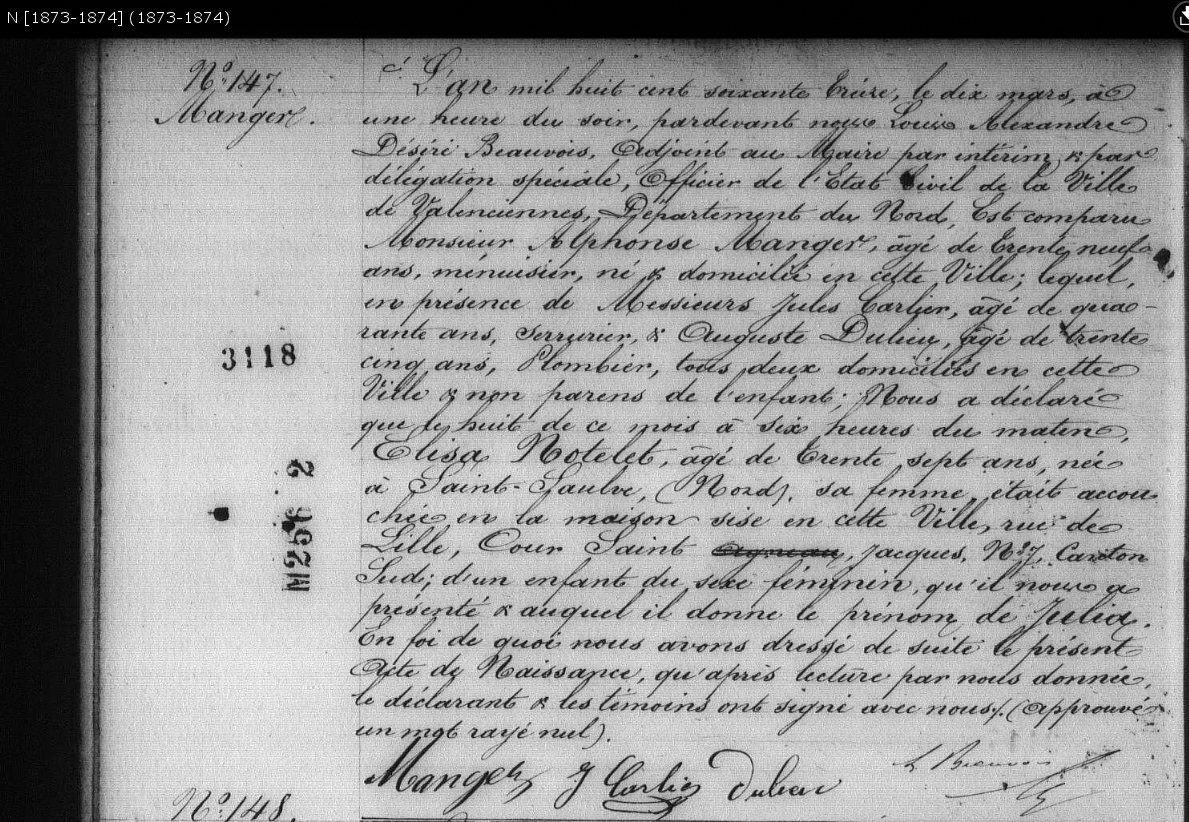 N [1873-1874] (1873-1874)
N.º 147.
Manger.
L'an mil huit cent soixante treize, le dix mars, à
une heure du soir, pardevant nous Louis Alexandre
Désiré Beauvois, Adjoint au Maire par intérim & par
délégation spéciale, Officier de l'Etat Civil de la Ville
de Valenciennes, Département du Nord, Est comparu
Monsieur Alphonse Manger, âgé de trente neuf
ans, ménuisier, né & domicilié en cette Ville; lequel,
en présence de Messieurs Jules Carlier, âgé de qua-
rante ans, Serrurier, & Auguste Dulieu, âgé de trente
cinq ans, Plombier, tous deux domiciliés en cette
Ville & non parens de l'enfant; Nous a déclaré
que le huit de ce mois à six heures du matin,
Elisa Notelet, âgé de trente sept ans, née
à Saint-Saulve, (Nord), sa femme, était accou
chée en la maison sise en cette Ville, rue de
Lille, Cour Saint Agneau, Jacques, Nº 7, Canton
Sud; d'un enfant du sexe féminin, qu'il nous a
présenté & auquel il donne le prénom de Julia.
En foi de quoi nous avons dressé de suite le présent
Acte de Naissance, qu'après lecture par nous donnée,
le déclarant & les témoins ont signé avec nous. (Approuvé
un mot rayé nul).
3118
M296 2
Manger J Carlier Dulieu L Beauvois
N.º 148.